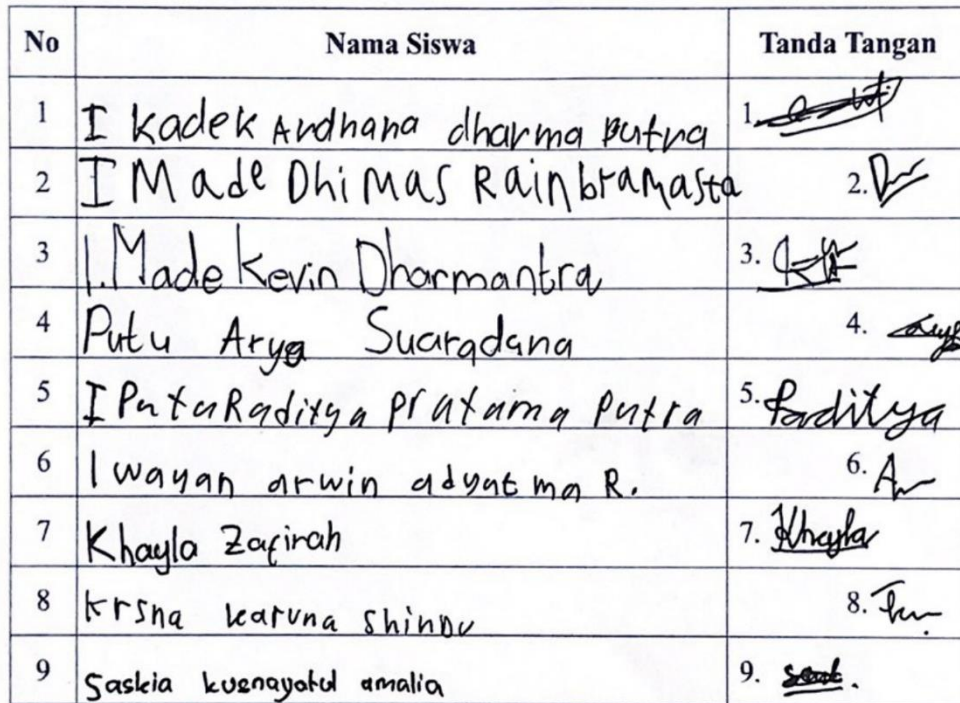 No Nama Siswa Tanda Tangan
1 I Kadek Ardhana dharma putra 1.
2 I Made Dhimas Rainbramasta 2.
3 I. Made Kevin Dharmantra 3.
4 Putu Arya Suaradana 4.
5 I Putu Raditya pratama putra 5. Raditya
6 I wayan arwin adyatma R. 6.
7 Khayla Zafirah 7. Khayla
8 krsna karuna shindu 8.
9 Saskia amalia 9.